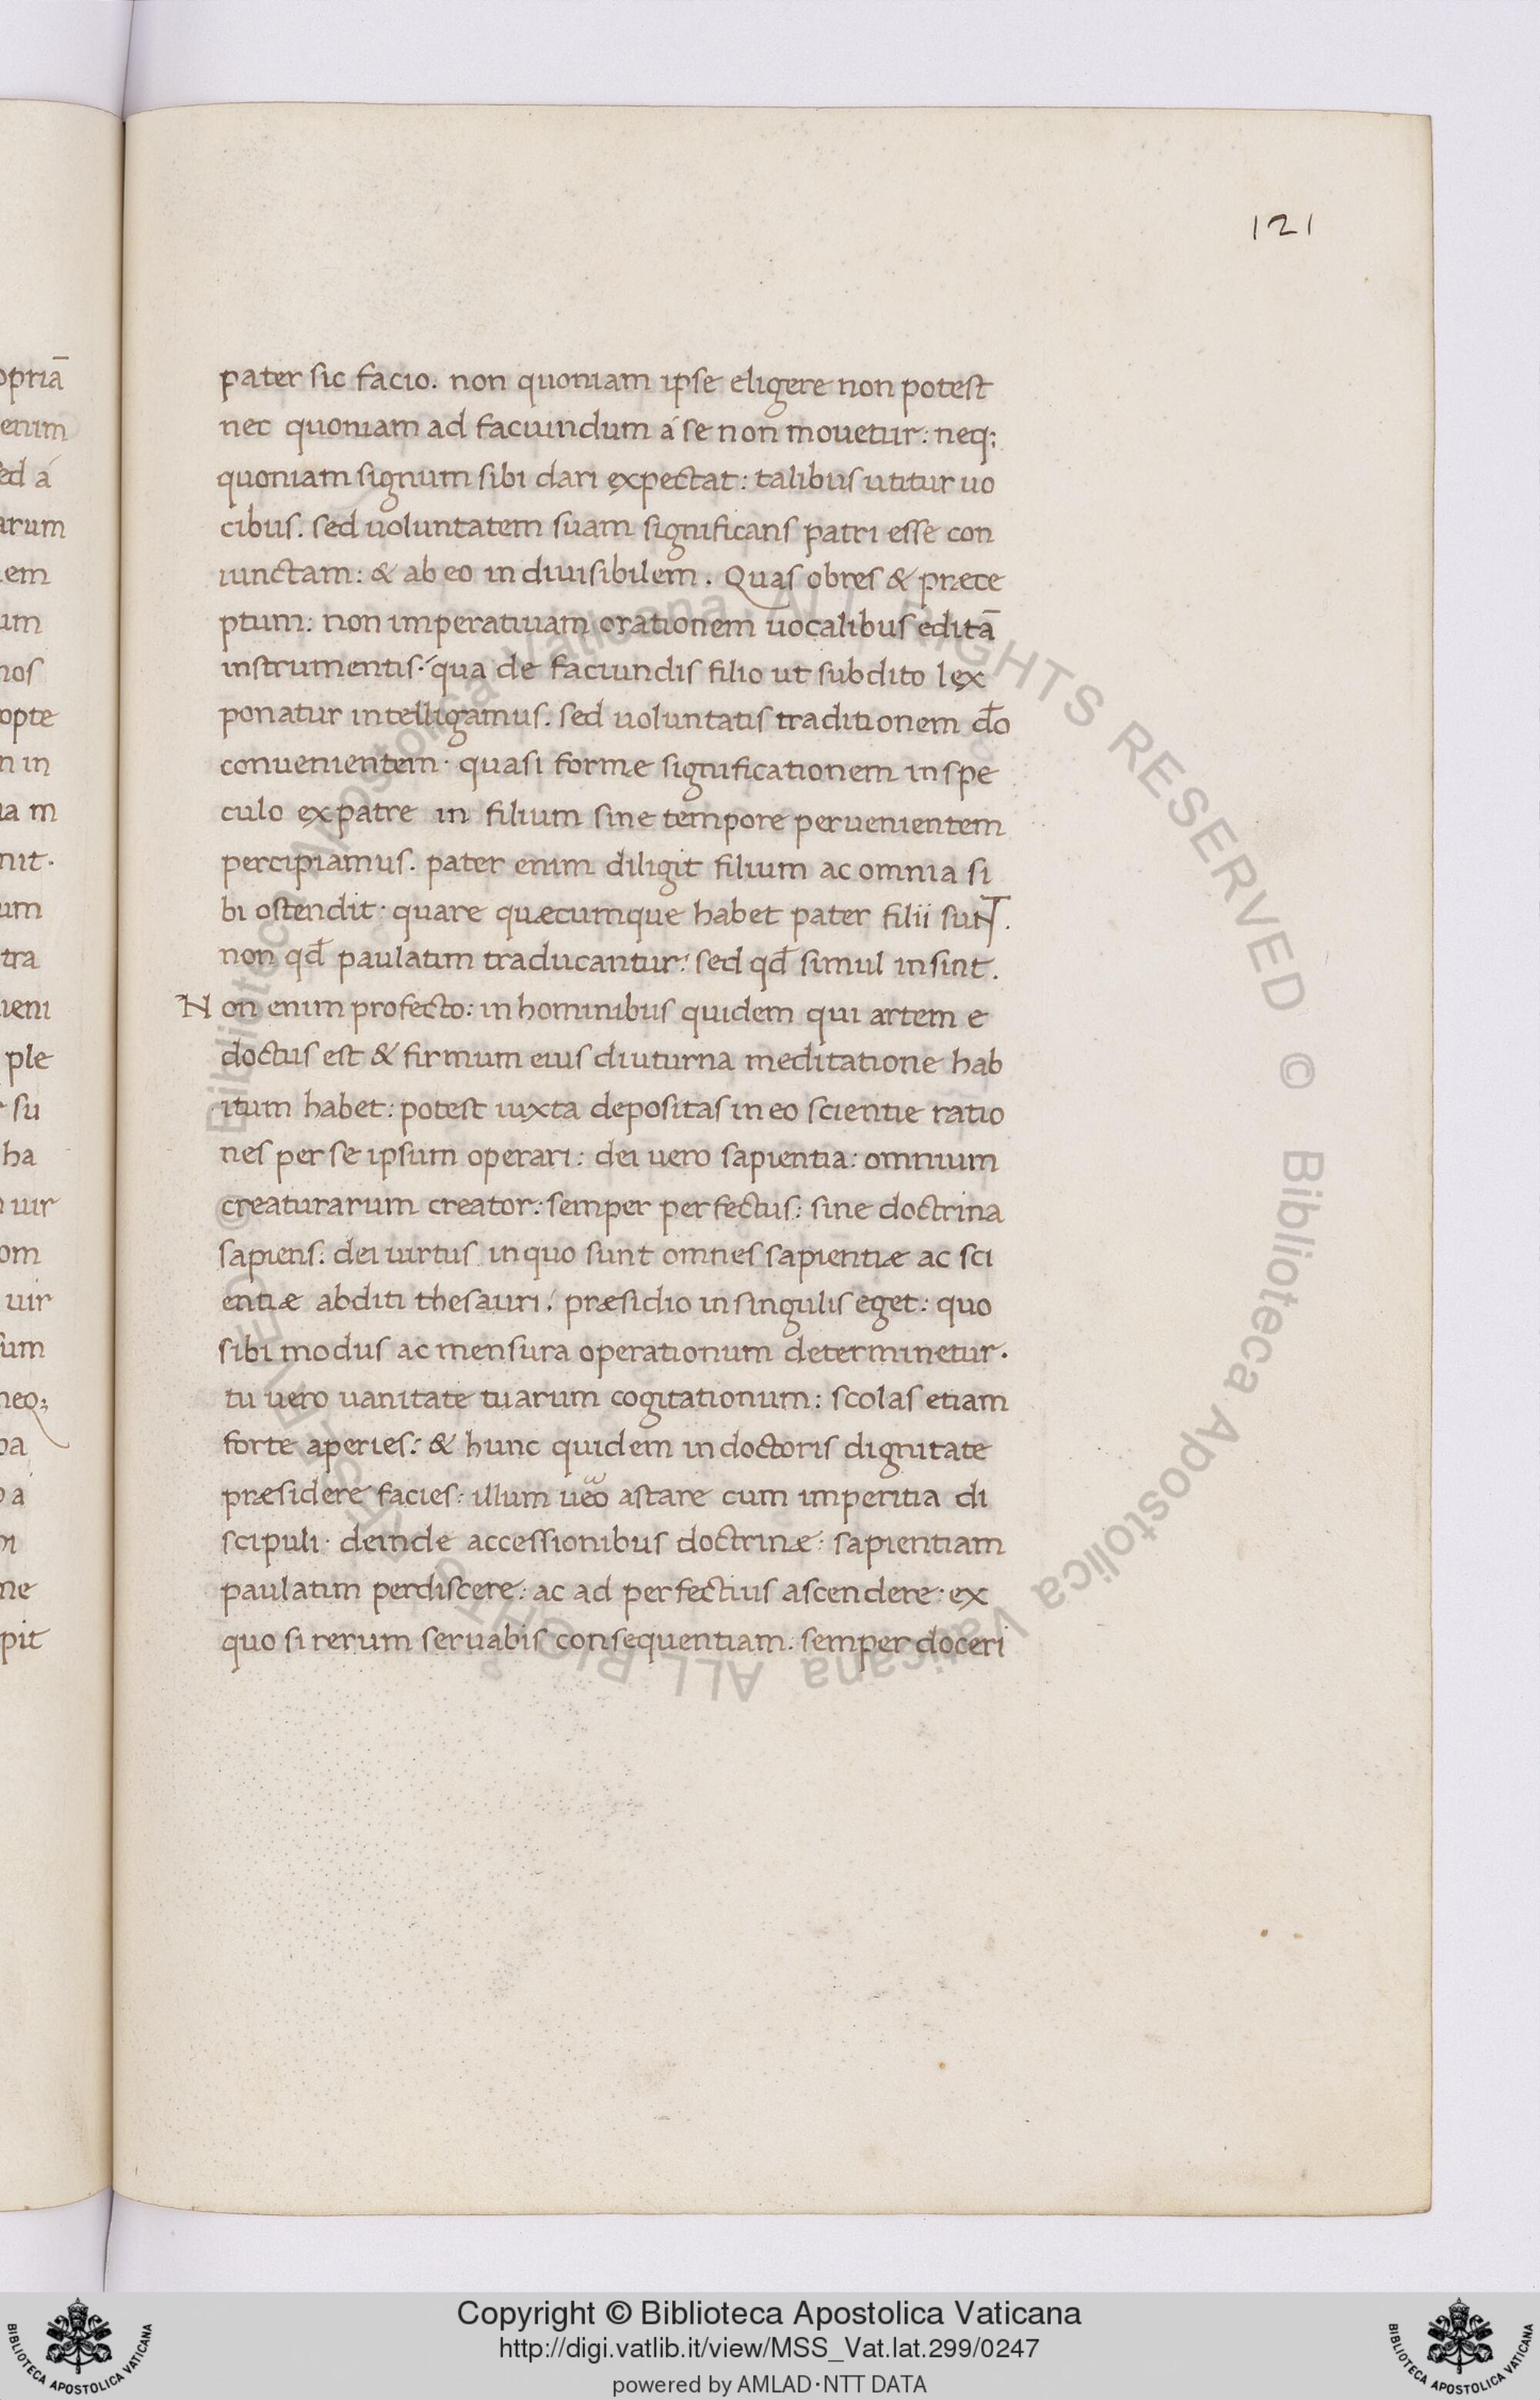 121
opriā
enim
ed á
arum
em
um
nos
opte
n in
ia m
nit.
um
tra
ueni
ple
su
ha
uir
om
uir
sum
neq;
pa
á
ne
pit
pater sic facio. non quoniam ipse eligere non potest
nec quoniam ad faciundum á se non mouetur: neq;
quoniam signum sibi dari expectat: talibus utitur uo
cibus. sed uoluntatem suam significans patri esse con
iunctam: & ab eo indiuisibilem. Quas obres & præce
ptum: non imperatiuam orationem uocalibus editā
instrumentis: qua de faciundis filio ut subdito lex
ponatur intelligamus. sed uoluntatis traditionem dō
conuenientem· quasi forme significationem in spe
culo ex patre in filium sine tempore peruenientem
percipiamus. pater enim diligit filium ac omnia si
bi ostendit· quare quæcumque habet pater filii suNT.
non qd̄ paulatim traducantur: sed qd̄ simul insint.
Non enim profecto: in hominibus quidem qui artem e
doctus est & firmum eius diuturna meditatione hab
itum habet: potest iuxta depositas in eo scientie ratio
nes per se ipsum operari: dei uero sapientia: omnium
creaturarum creator: semper perfectus: sine doctrina
sapiens: dei uirtus in quo sunt omnes sapientiæ ac sci
entiæ abditi thesauri: præsidio in singulis eget: quo
sibi modus ac mensura operationum determinetur.
tu uero uanitate tuarum cogitationum: scolas etiam
forte aperies: & hunc quidem in doctoris dignitate
præsidere facies: illum ueo astare cum imperitia di
scipuli· deinde accessionibus doctrinæ: sapientiam
paulatim perdiscere: ac ad perfectius ascendere: ex
quo si rerum seruabis consequentiam. semper doceri
© Biblioteca Apostolica Vaticana ALL RIGHTS RESERVED © Biblioteca Apostolica Vaticana ALL RIGHTS RESERVED
Copyright © Biblioteca Apostolica Vaticana
http://digi.vatlib.it/view/MSS_Vat.lat.299/0247
powered by AMLAD·NTT DATA
BIBLIOTECA APOSTOLICA VATICANA
BIBLIOTECA APOSTOLICA VATICANA